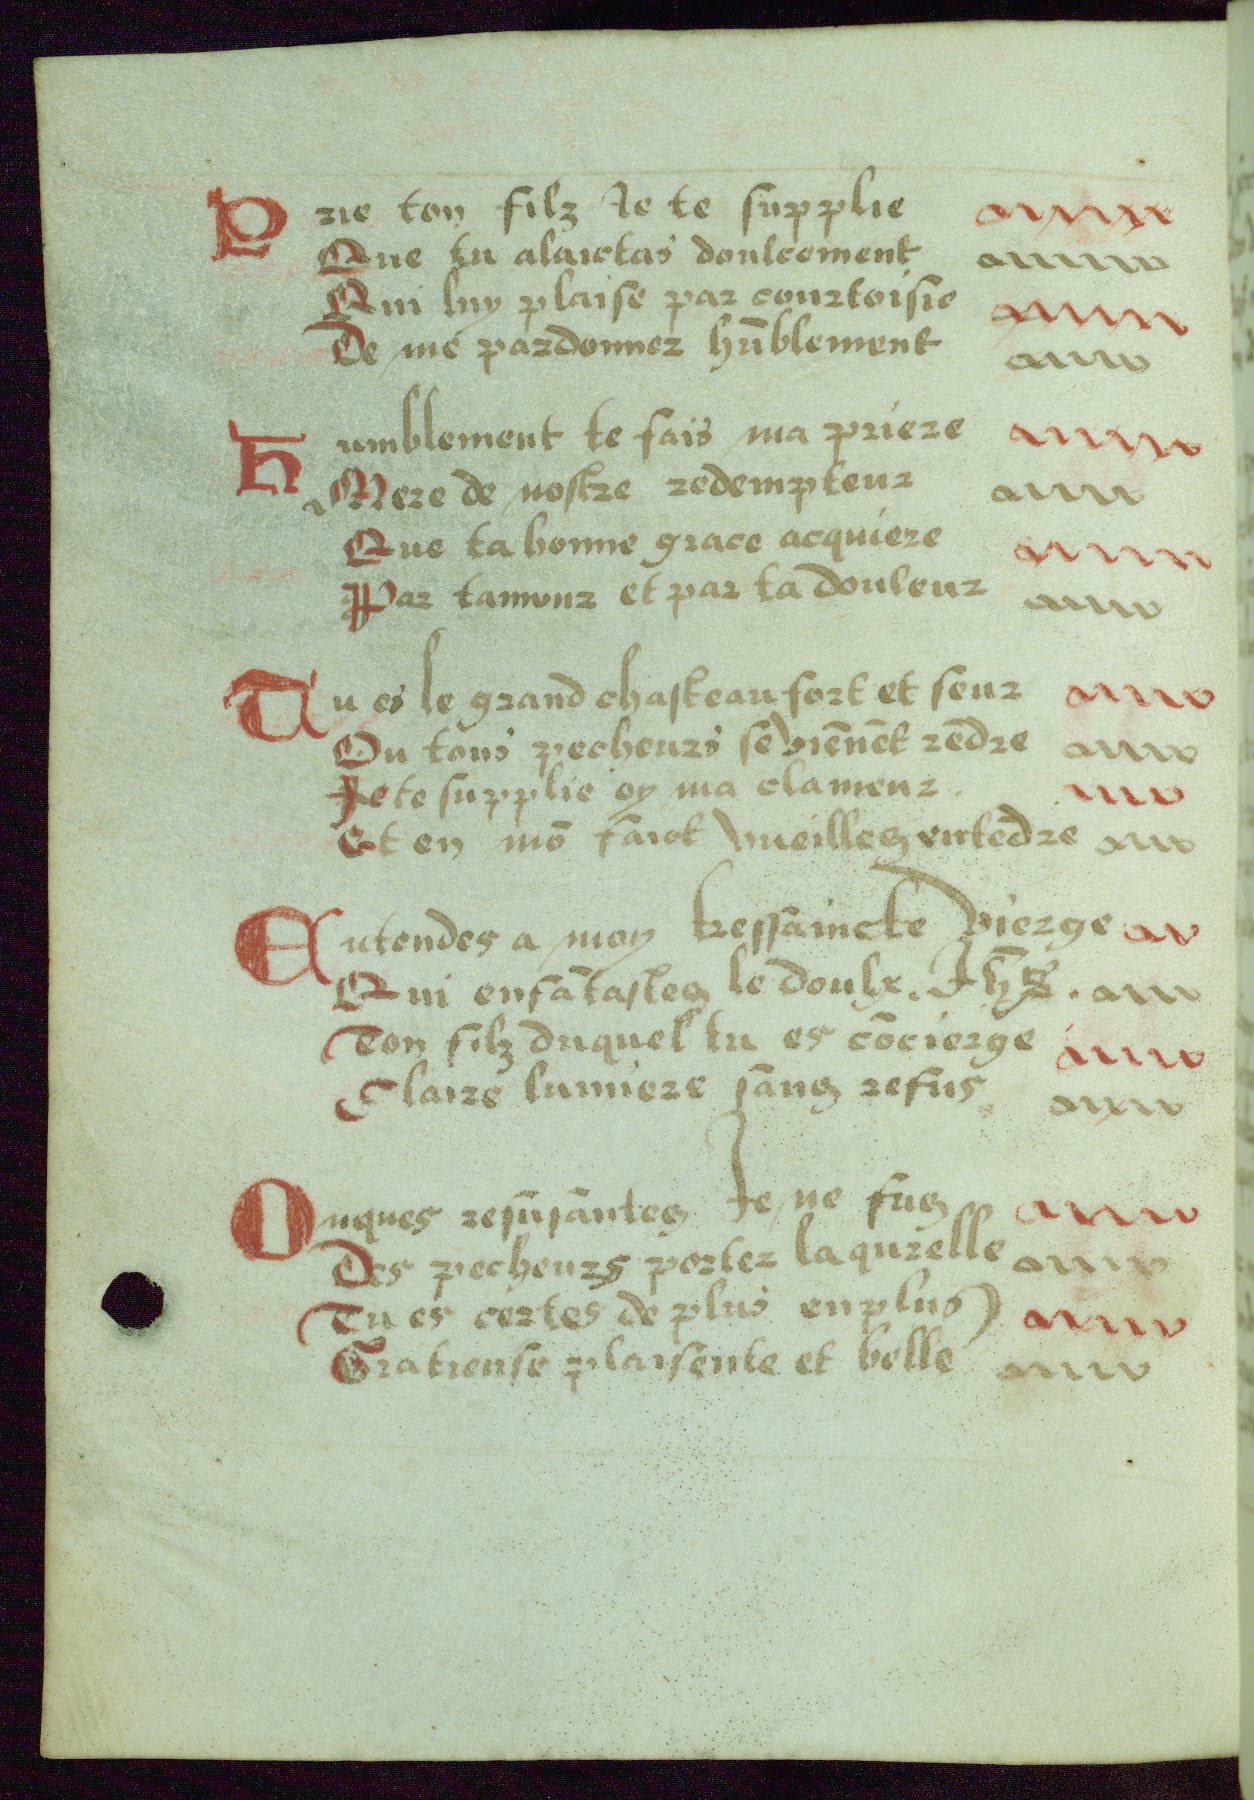 Prie ton filz Je te supplie
Que tu alaictas doulcement
Qui luy plaise par courtoisie
De me pardonner hūblement
Humblement te fais ma priere
Mere de nostre redempteur
Que ta bonne grace acquiere
Par tamour et par ta douleur
Tu es le grand chasteau fort et seur
Ou tous pecheurs se viēnēt rēdre
Je te supplie oy ma clameur.
Et en mō faict vueillez entēdre
Entendes a moy tressaincte vierge
Qui enfātastez le doulx. Jhūs.
Ton filz duquel tu es cōcierge
Claire lumiere sans refus
Onques refusantez Je ne fuz
Des pecheurs porter la qurelle
Tu es certes de plus en plus
Gratieuse plaisente et belle